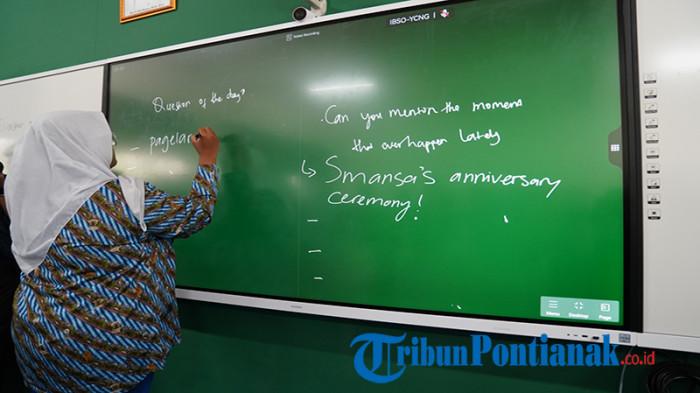 IBSO-YCNG
Question of the day?
- pagelar
. Can you mention the moment
that ever happen lately
↳ Smansa's anniversary
ceremony!
-
-
-
Menu
Desktop
Page
TribunPontianak.co.id